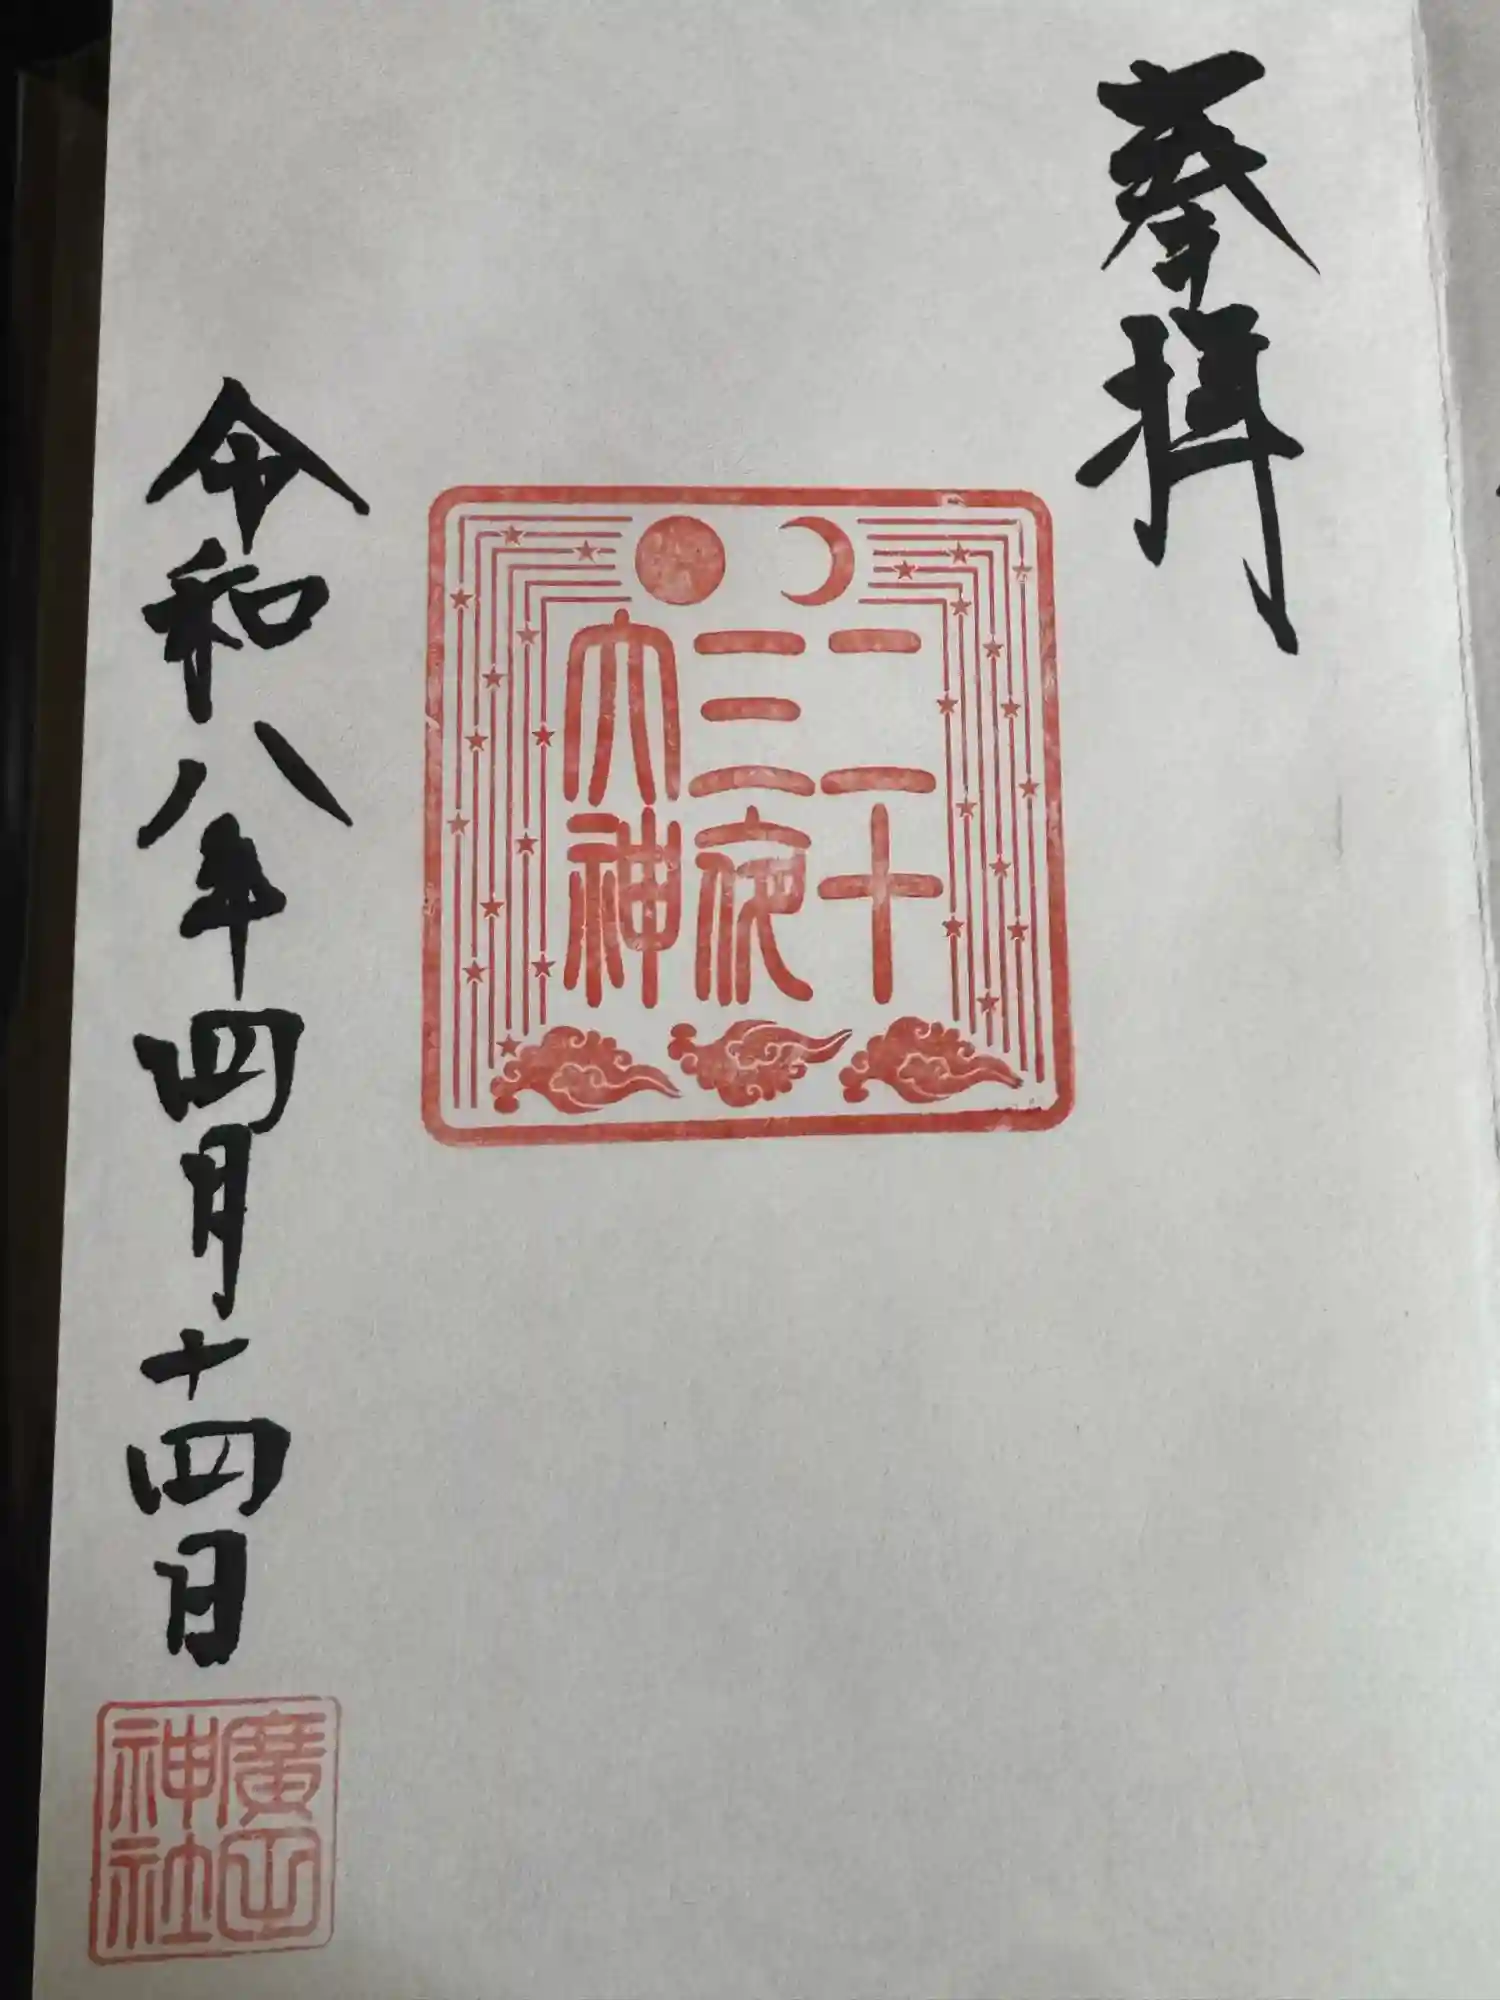 奉拝
二十
三夜
大神
令和八年四月十四日
廣田
神社